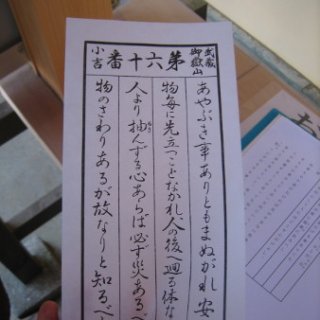 武蔵御嶽山 第六十番 小吉
あやふき事ありともまぬがれ安
物毎に先立つことなかれ人の後へ廻る体な
人より抽んずる心あらば必ず災あるべ
物のさわりあるが故なりと知るべ